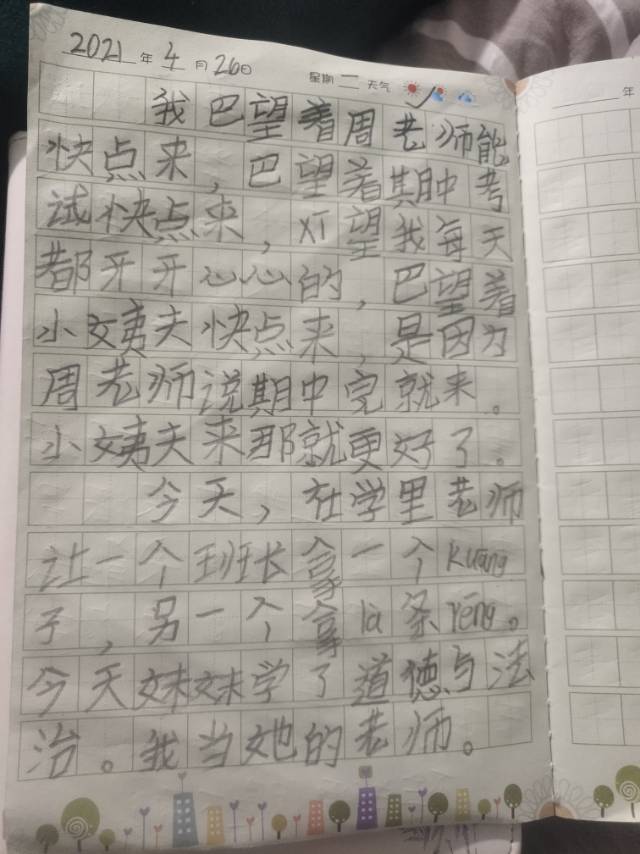 2021年4月26日 星期二 天气
我巴望着周老师能
快点来，巴望着期中考
试快点来，对望我每天
都开开心心的，巴望着
小姨夫快点来，是因为
周老师说期中完就来。
小姨夫来那就更好了。
今天，在学里老师
让一个班长拿一个kuang
子，另一个拿la条rēng。
今天妹妹学了道德与法
治。我当她的老师。
年